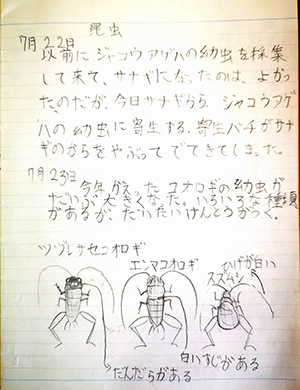 昆虫
7月22日
以前にジャコウアゲハの幼虫を採集
して来て、サナギになったのは、よかっ
た、のだが、今日サナギから、ジャコウアゲ
ハの幼虫に寄生する、寄生バチがサナ
ギのからをやぶってでてきてしまった。
7月23日
今年かえったコオロギの幼虫が
だいぶ大きくなった。いろいろな種類
があるが、だいたいけんとうがつく。
ツヅレサセコオロギ
エンマコオロギ
ひげが白い
スズムシ
だんだらがある
白いすじがある